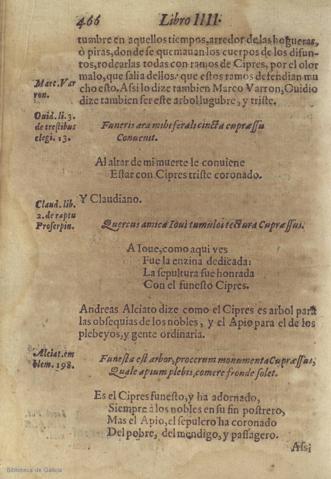 466 Libro IIII.
tumbre en aquellos tiempos, arredor de las hogueras,
ò piras, donde se quemauan los cuerpos de los difun-
tos, rodearlas todas con ramos de Cipres, por el olor
malo, que salia dellos: que estos ramos defendian mu
cho esto. Assi lo dize tambien Marco Varron, Ouidio
dize tambien ser este arbol lugubre, y triste.
Marc. Var
ron.
Ouid. li. 3.
de trestibus
elegi. 13.
Funeris ara mihi ferali cincta cupressu
Conuenit.
Al altar de mi muerte le conuiene
Estar con Cipres triste coronado.
Y Claudiano.
Claud. lib.
2. de raptu
Proserpin.
Quercus amica Ioui tumulos tectura Cupræssus.
A Ioue, como aqui ves
Fue la enzina dedicada:
La sepultura fue honrada
Con el funesto Cipres.
Andreas Alciato dize como el Cipres es arbol para
las obsequias de los nobles, y el Apio para el de los
plebeyos, y gente ordinaria.
Alciat. em
blem. 198.
Funesta est arbor, procerum monumenta Cupræssus,
Quale apium plebis, comere fronde solet.
Es el Cipres funesto, y ha adornado,
Siempre à los nobles en su fin postrero,
Mas el Apio, el sepulcro ha coronado
Del pobre, del mendigo, y passagero.
Assi
Biblioteca de Galicia